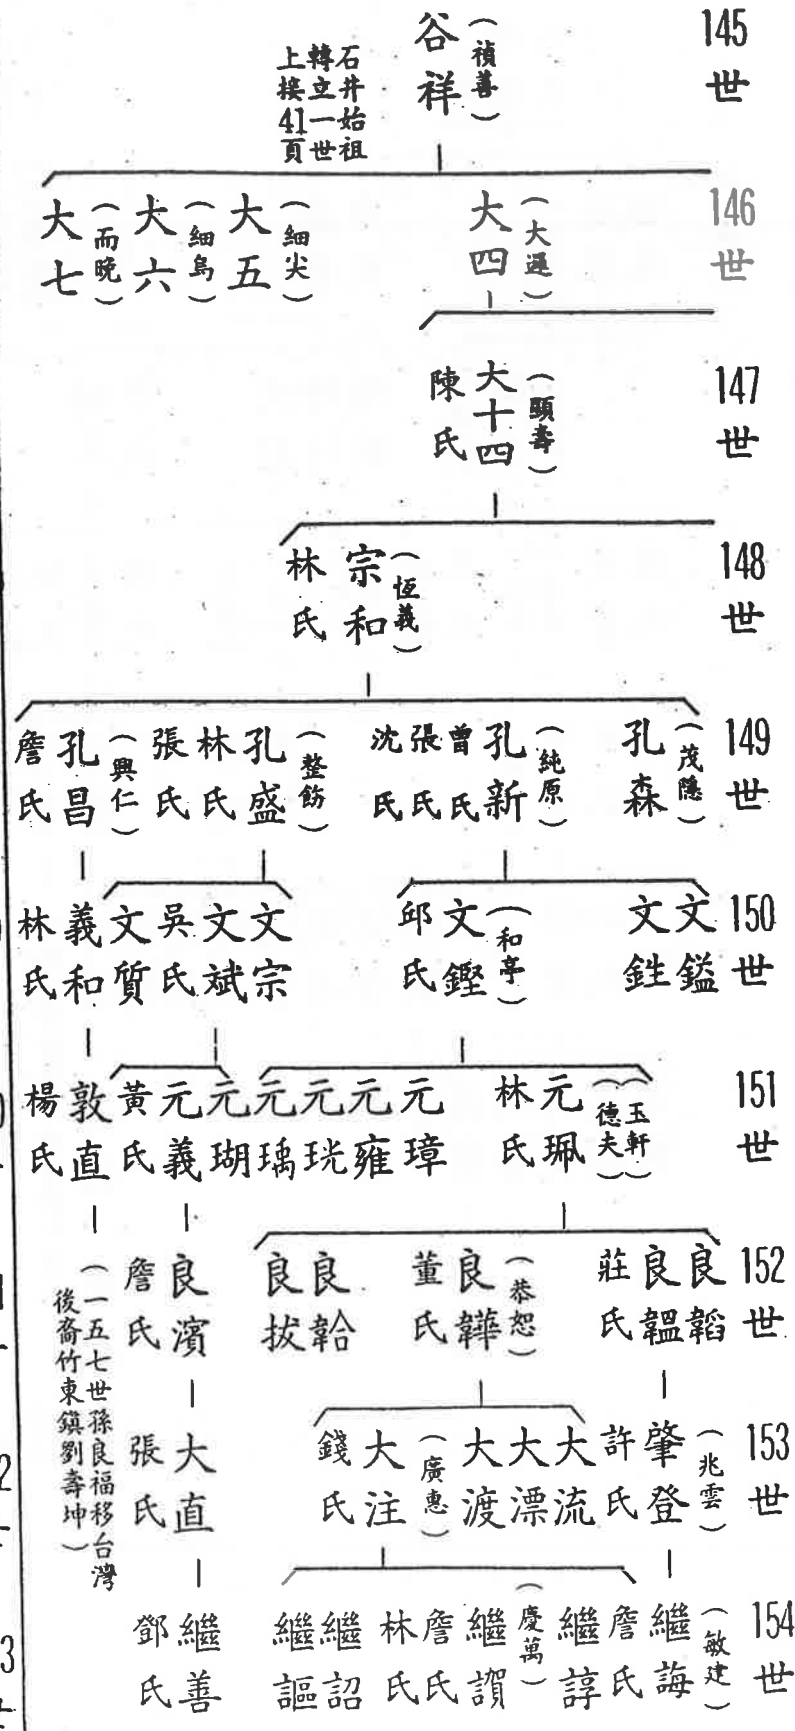 145世
谷祥
(禎善)
石井始祖
轉立一世
上接41頁
146世
大四
(大遲)
大五
(細尖)
大六
(細烏)
大七
(而晚)
147世
大十四
(顯壽)
陳氏
148世
宗和
(恆義)
林氏
149世
孔森
(茂隱)
孔新
(純原)
曾氏
張氏
沈氏
孔盛
(整飭)
林氏
張氏
孔昌
(興仁)
詹氏
150世
文鎰
文鉎
文鏗
(和亭)
邱氏
文宗
文斌
吳氏
文質
義和
林氏
151世
元珮
(玉軒)
(德夫)
林氏
元璋
元雍
元珖
元瑀
元瑚
元義
黃氏
敦直
楊氏
152世
良韜
良韞
莊氏
良韡
(恭恕)
董氏
良韐
良拔
良濱
詹氏
(一五七世孫良福移台灣
後裔竹東鎮劉壽坤)
153世
肇登
(兆雲)
許氏
大流
大漂
大渡
大注
(廣惠)
錢氏
大直
張氏
154世
繼誨
(敏建)
詹氏
繼諄
繼謨
(慶萬)
詹氏
林氏
繼詔
繼謳
繼善
鄧氏